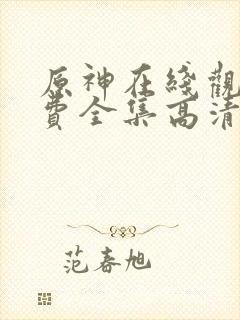 原神在綫觀
費全集高清
范春旭